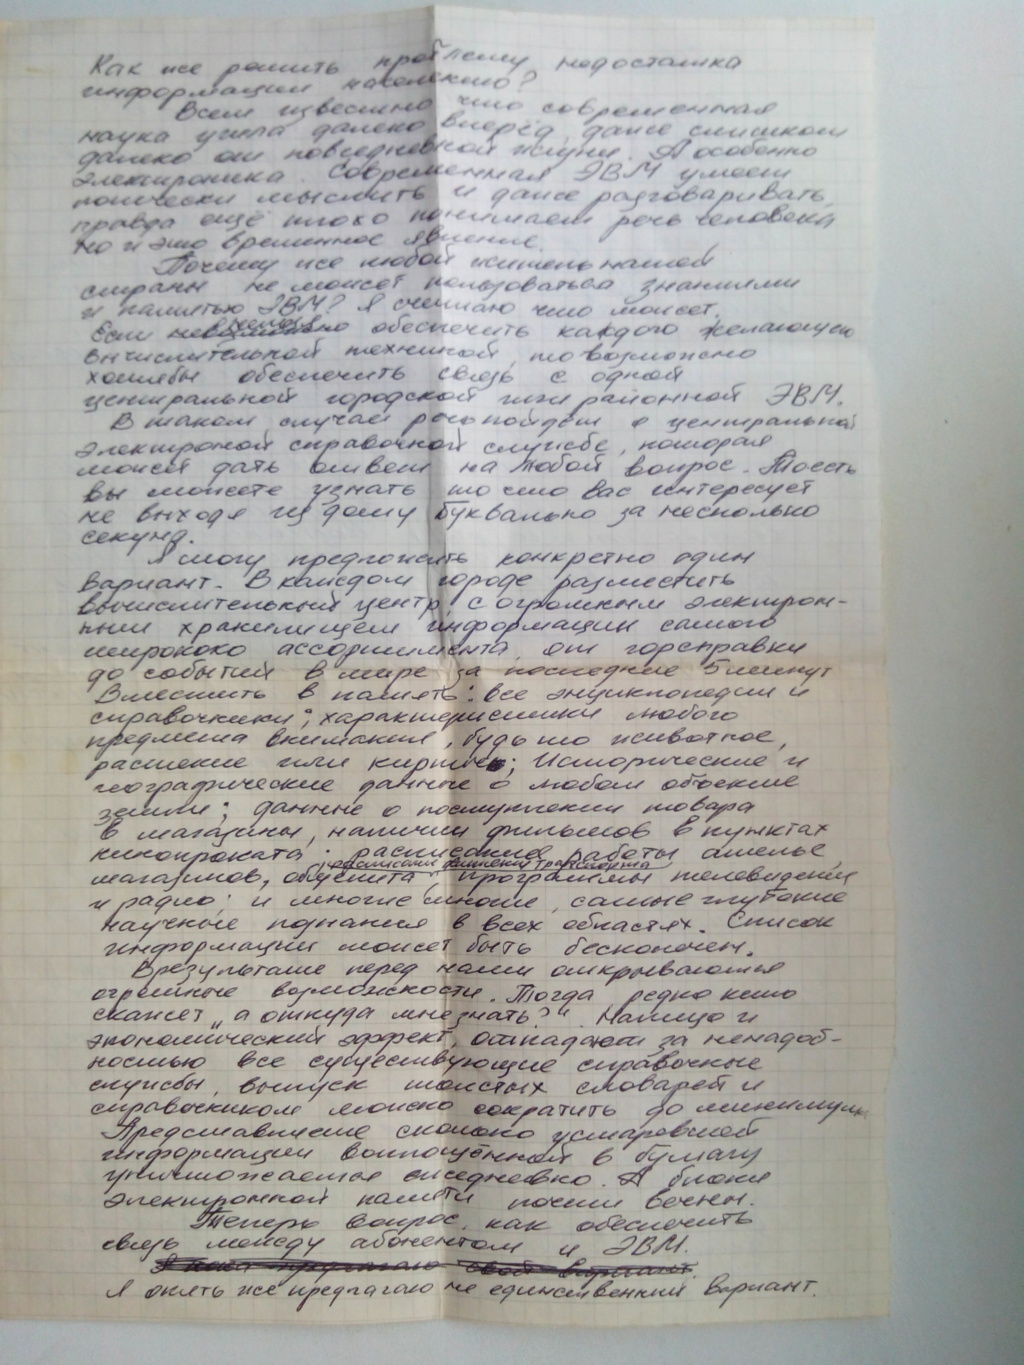 Как же решить проблему недостатка
информации населению?
Всем известно что современная
наука ушла далеко вперёд, даже слишком
далеко от повседневной жизни. А особенно
электроника. Современная ЭВМ умеет
логически мыслить и даже разговаривать,
правда ещё плохо понимает речь человека
но и это временное явление.
Почему же любой житель нашей
страны не может пользоваться знаниями
и памятью ЭВМ? Я считаю что может.
Если обеспечить каждого желающего
вычислительной техникой, то возможно
хотябы обеспечить связь с одной
центральной городской или районной ЭВМ.
В таком случаи речь пойдёт о центральной
электроной справочной службе, которая
может дать ответ на любой вопрос. Тоесть
вы можете узнать то что вас интересует
не выходя из дому буквально за несколько
секунд.
Я могу предложить конкретно один
вариант. В каждом городе разместить
вычислительный центр, с огромным электрон-
ным хранилищем информации самого
широкого ассортимента, от горсправки
до событий в мире за последние 5 минут
Вместить в память: все энциклопедии и
справочники; характеристики любого
предмета внимания, будь то животное,
растение или кирпич; Исторические и
географические данные о любом объекте
земли; данные о поступлении товара
в магазины, наличии фильмов в пунктах
кинопроката; расписание работы ателье,
расписание движения транспорта
магазинов, общепита; программы телевидения
и радио; и многие иные, самые глубокие
научные познания в всех областях. Список
информации может быть бесконечен.
Врезультате перед нами открываются
огромные возможности. Тогда редко кто
скажет „а откуда мне знать?“. Налицо и
экономический эффект, отпадают за ненадоб-
ностью все существующие справочные
службы, выпуск толстых словарей и
справочников можно сократить до минимума.
Представляете сколько устаревшей
информации воплощённой в бумагу
уничтожается ежедневно. А блоки
электронной памяти почти вечны.
Теперь вопрос, как обеспечить
связь между абонентом и ЭВМ.
Я пока предлагаю свой вариант.
Я опять же предлагаю не единственный вариант.